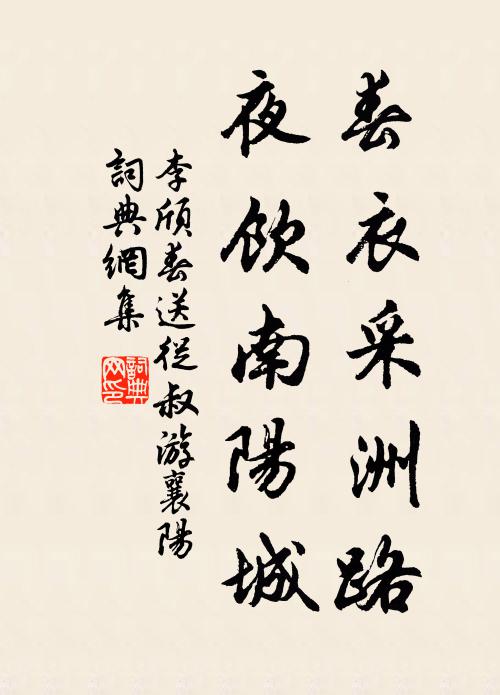 春衣采洲路
夜飲南陽城
李頎春送從叔游襄陽
詞典網集
詞典網印